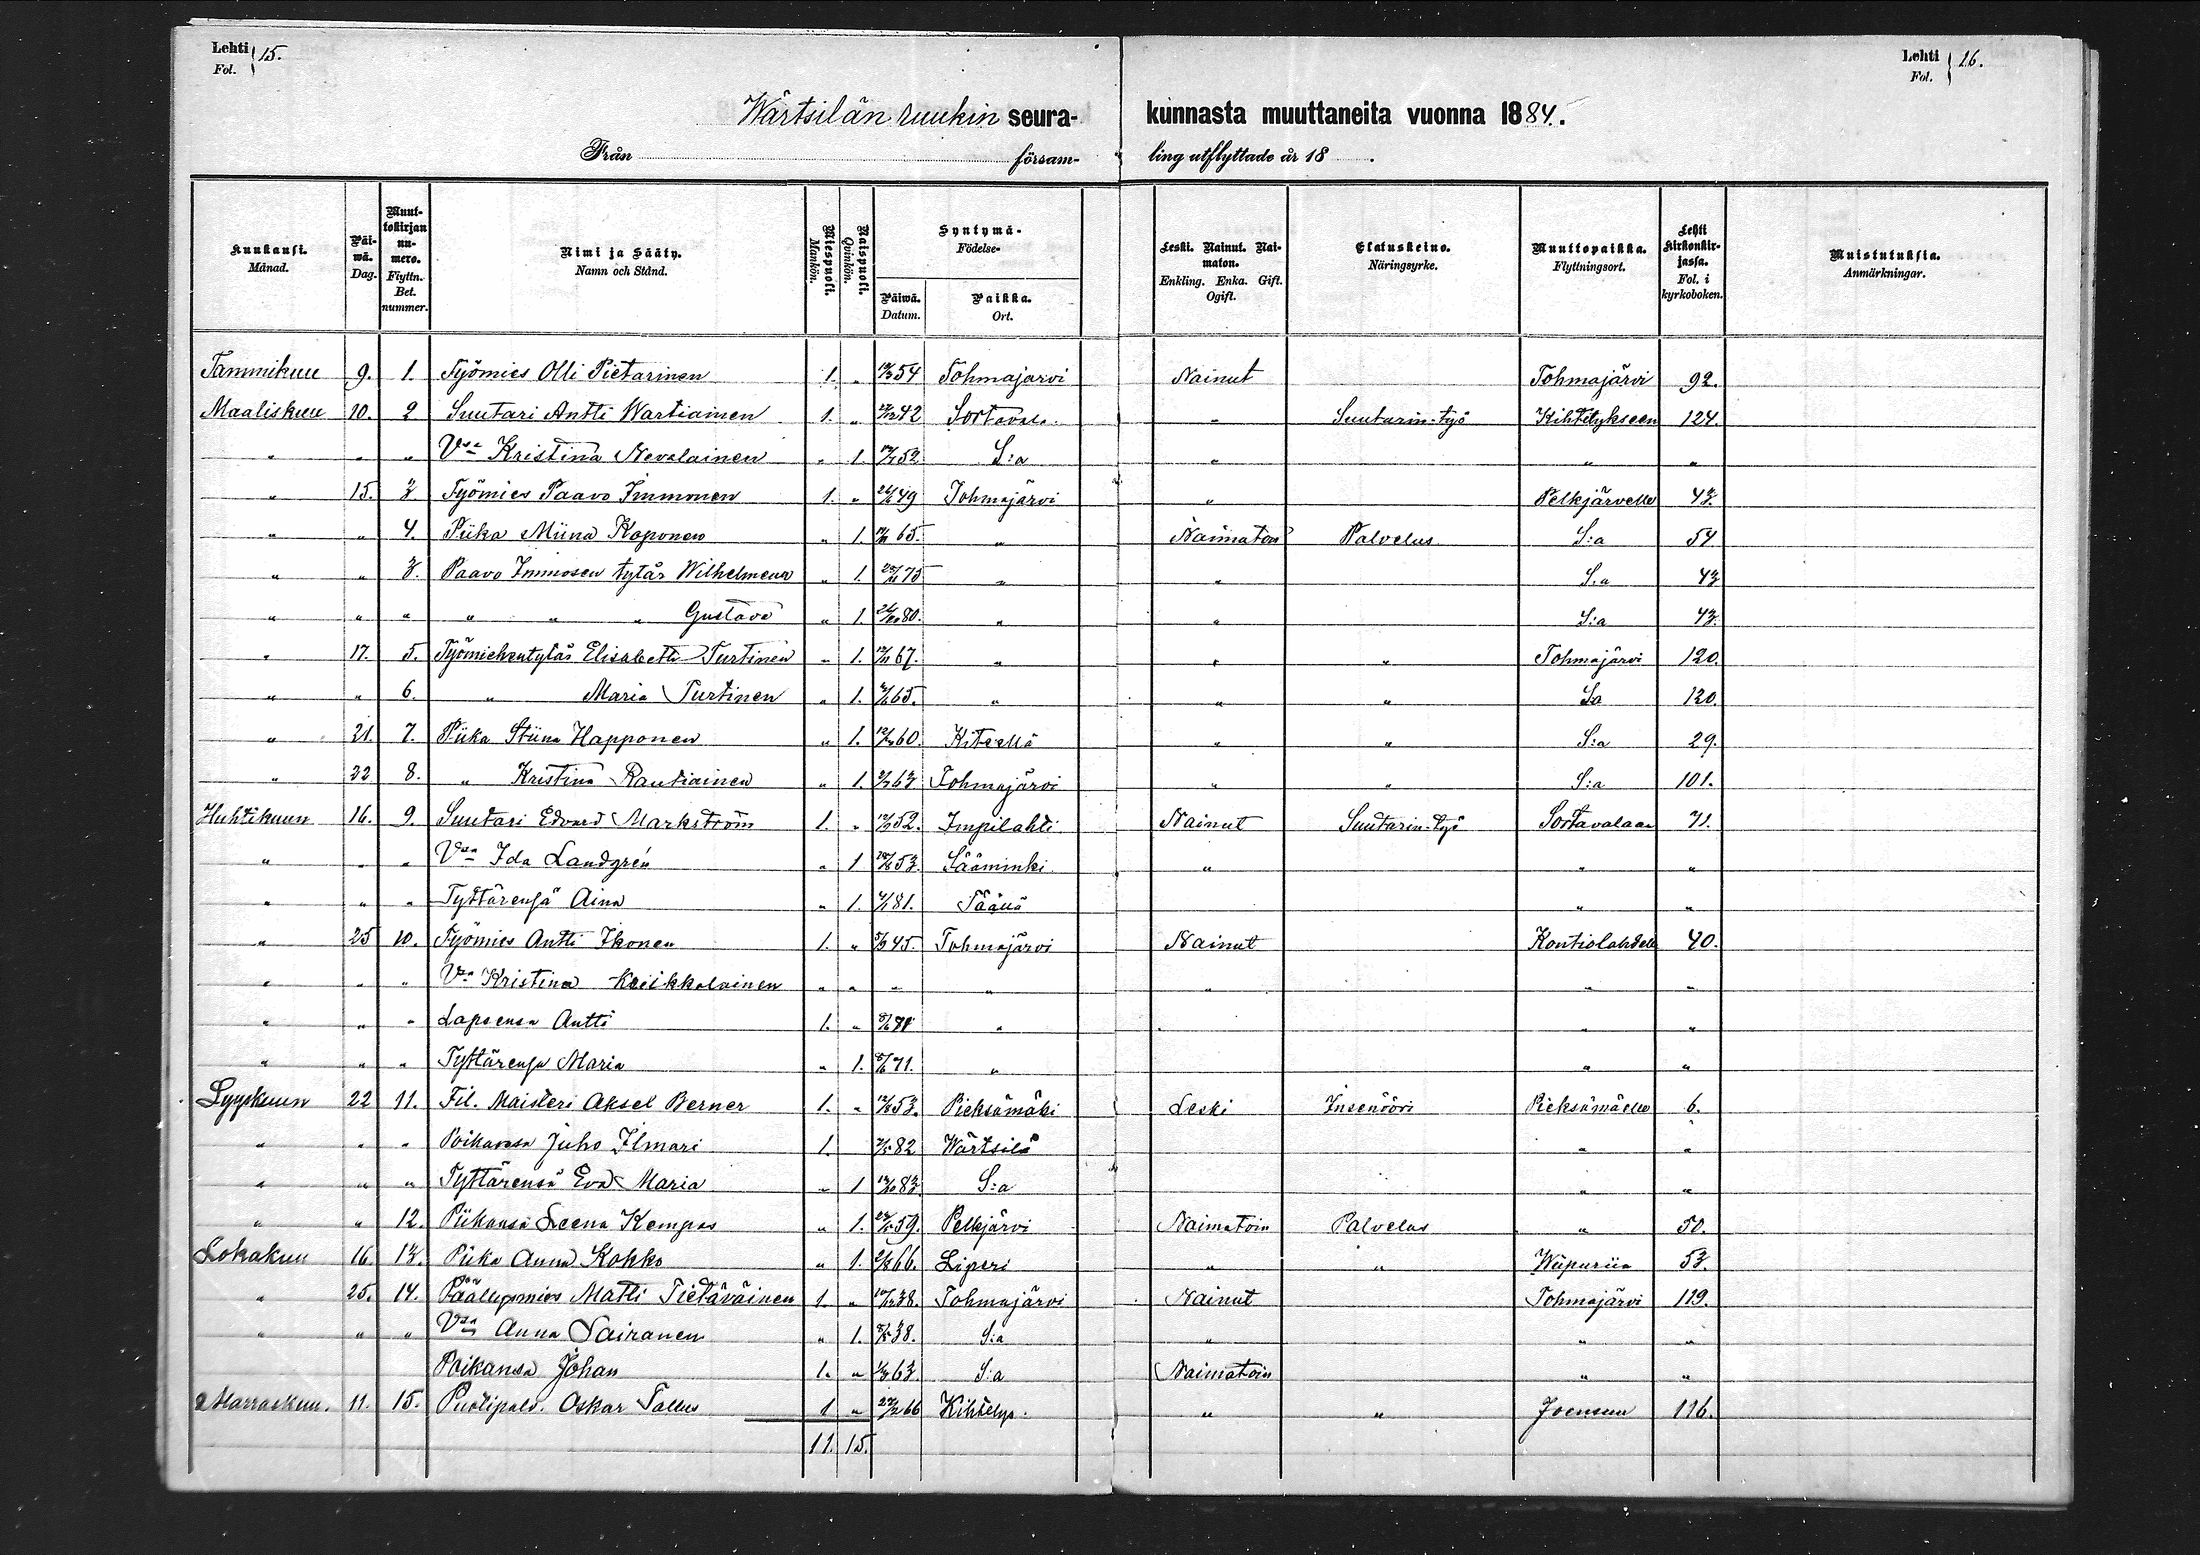 Lehti Fol. 15.
Lehti Fol. 16.
Wärtsilän ruukin seura- kunnasta muuttaneita vuonna 1884.
Från församling utflyttade år 18 .
Kuukausi. Månad. | Päiwä. Dag. | Muuttokirjan numero. Flyttn. Bet. nummer. | Nimi ja Sääty. Namn och Stånd. | Miespuoli. Mankön. | Naispuoli. Qvinkön. | Syntymä- Födelse- Päiwä. Datum. | Paikka. Ort. | Leski. Nainut. Naimaton. Enkling. Enka. Gift. Ogift. | Elatuskeino. Näringsyrke. | Muuttopaikka. Flyttningsort. | Lehti Kirkonkirjassa. Fol. i kyrkoboken. | Muistutuksia. Anmärkningar.
Tammikuu 9. 1. Työmies Olli Pietarinen 1. " 54 Tohmajärvi Nainut Tohmajärvi 92.
Maaliskuu 10. 2 Suutari Antti Wartiainen 1. " 42 Sortavala " Suutarin-työ Kihtelykseen 124.
" " " Vsa Kristina Nevalainen " 1. 52 S:a " " "
" 15. 3 Työmies Paavo Immonen 1. " 49 Tohmajärvi " Pelkjärvelle 43.
" " 4. Piika Miina Koponen " 1. 65. " Naimaton Palvelus S:a 54
" " 3. Paavo Immosen tytär Wilhelmena " 1. 75 " " S:a 43
" " " " " " Gustava " 1. 80. " " S:a 43.
" 17. 5. Työmiehentytär Elisabetti Turtinen " 1. 67. " " " Tohmajärvi 120.
" " 6. " Maria Turtinen " 1. 65. " " " Sa 120.
" 21. 7. Piika Stiina Happonen " 1. 60. Kiteellä " " S:a 29.
" 22 8. " Kristina Rautiainen " 1. 63 Tohmajärvi " " S:a 101.
Huhtikuun 16. 9. Suutari Edvard Markström 1. " 52. Impilahti Nainut Suutarin-työ Sortavalaan 71.
" " " Vsa Ida Landgrén " 1 53. Sääminki " " "
" " " Tyttärensä Aina " 1. 81. Täällä " "
" 25 10. Työmies Antti Ikonen 1. " 45. Tohmajärvi Nainut Kontiolahdelle 40.
" " " Vsa Kristina Keikkolainen " " " " " " "
" " " Lapsensa Antti 1. " " " " "
" " " Tyttärensä Maria " 1. 71. " " "
Syyskuun 22 11. Fil. Maisteri Aksel Berner 1. " 53. Pieksämäki Leski Insenööri Pieksämäelle 6.
" " " Poikansa Juho Ilmari 1. 82 Wärtsilä " "
" " " Tyttärensä Eva Maria " 1 83 S:a " "
" " 12. Piikansa Leena Kempas " 1. 59. Pelkjärvi Naimatoin Palvelus " 50.
Lokakuu 16. 13. Piika Anna Kokko " 1. 66. Liperi " " Wiipuriin 53.
" 25. 14. Päällysmies Matti Tietäväinen 1. " 38. Tohmajärvi Nainut Tohmajärvi 119.
" " " Vsa Anna Sairanen " 1. 38. S:a " " "
Poikansa Johan 1. " 63. S:a Naimatoin " "
Marraskuu. 11. 15. Puolipald. Oskar Tallus 1 " 66 Kihtelys. " " Joensuu 116.
11. 15.